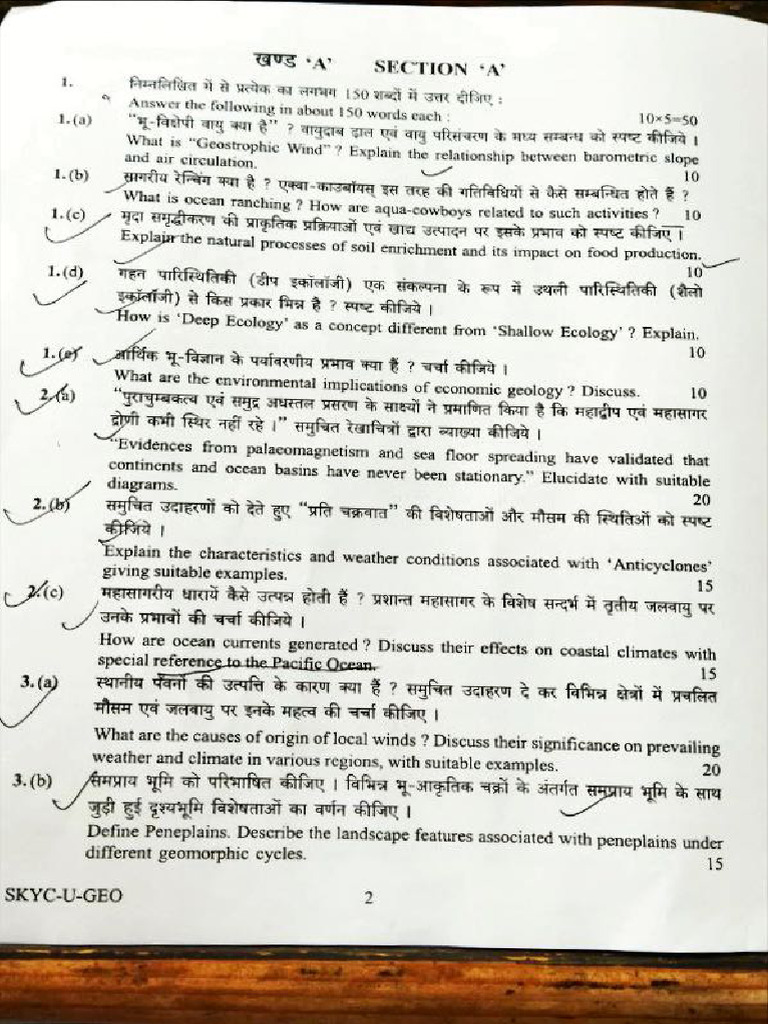 खण्ड 'A' SECTION 'A'
1. निम्नलिखित में से प्रत्येक का लगभग 150 शब्दों में उत्तर दीजिए :
Answer the following in about 150 words each : 10×5=50
1.(a) "भू-विक्षेपी वायु क्या है" ? वायुदाब ढाल एवं वायु परिसंचरण के मध्य सम्बन्ध को स्पष्ट कीजिये ।
What is "Geostrophic Wind" ? Explain the relationship between barometric slope
and air circulation. 10
1.(b) सागरीय रेन्चिंग क्या है ? एक्वा-काउबॉयस् इस तरह की गतिविधियों से कैसे सम्बन्धित होते हैं ?
What is ocean ranching ? How are aqua-cowboys related to such activities ? 10
1.(c) मृदा समृद्धीकरण की प्राकृतिक प्रक्रियाओं एवं खाद्य उत्पादन पर इसके प्रभाव को स्पष्ट कीजिए ।
Explain the natural processes of soil enrichment and its impact on food production.
10
1.(d) गहन पारिस्थितिकी (डीप इकॉलॉजी) एक संकल्पना के रूप में उथली पारिस्थितिकी (शैलो
इकॉलॉजी) से किस प्रकार भिन्न है ? स्पष्ट कीजिये ।
How is 'Deep Ecology' as a concept different from 'Shallow Ecology' ? Explain.
10
1.(e) आर्थिक भू-विज्ञान के पर्यावरणीय प्रभाव क्या हैं ? चर्चा कीजिये ।
What are the environmental implications of economic geology ? Discuss. 10
2.(a) "पुराचुम्बकत्व एवं समुद्र अधस्तल प्रसरण के साक्ष्यों ने प्रमाणित किया है कि महाद्वीप एवं महासागर
द्रोणी कभी स्थिर नहीं रहे ।" समुचित रेखाचित्रों द्वारा व्याख्या कीजिये ।
"Evidences from palaeomagnetism and sea floor spreading have validated that
continents and ocean basins have never been stationary." Elucidate with suitable
diagrams. 20
2.(b) समुचित उदाहरणों को देते हुए "प्रति चक्रवात" की विशेषताओं और मौसम की स्थितिओं को स्पष्ट
कीजिये ।
Explain the characteristics and weather conditions associated with 'Anticyclones'
giving suitable examples. 15
2.(c) महासागरीय धारायें कैसे उत्पन्न होती हैं ? प्रशान्त महासागर के विशेष सन्दर्भ में तृतीय जलवायु पर
उनके प्रभावों की चर्चा कीजिये ।
How are ocean currents generated ? Discuss their effects on coastal climates with
special reference to the Pacific Ocean. 15
3.(a) स्थानीय पवनों की उत्पत्ति के कारण क्या हैं ? समुचित उदाहरण दे कर विभिन्न क्षेत्रों में प्रचलित
मौसम एवं जलवायु पर इनके महत्व की चर्चा कीजिए ।
What are the causes of origin of local winds ? Discuss their significance on prevailing
weather and climate in various regions, with suitable examples. 20
3.(b) समप्राय भूमि को परिभाषित कीजिए । विभिन्न भू-आकृतिक चक्रों के अंतर्गत समप्राय भूमि के साथ
जुड़ी हुई दृश्यभूमि विशेषताओं का वर्णन कीजिए ।
Define Peneplains. Describe the landscape features associated with peneplains under
different geomorphic cycles. 15
SKYC-U-GEO 2